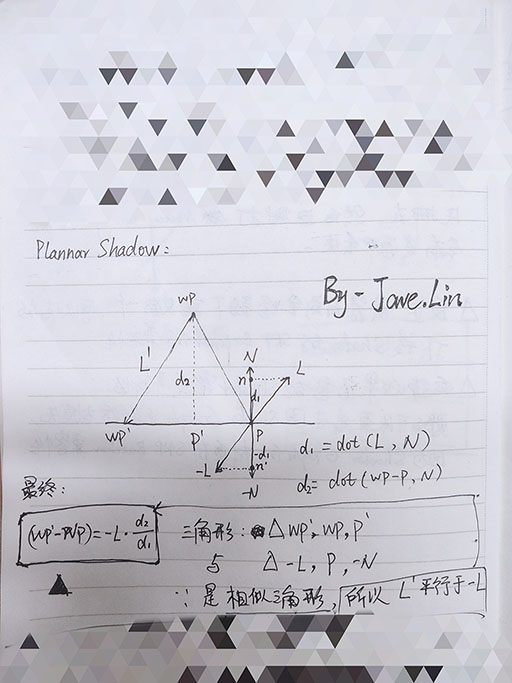 Plannar Shadow:
By - Jowe.Lin
wp
N
L'
n
L
d₂
d₁
wp'
p'
P
-d₁
-L
n'
-N
d₁ = dot(L, N)
d₂ = dot(wp-P, N)
最终:
(wp'-wp) = -L · d₂/d₁
三角形: △ wp', wp, p'
与 △ -L, P, -N
∵ 是相似三角形, 所以 L' 平行于 -L